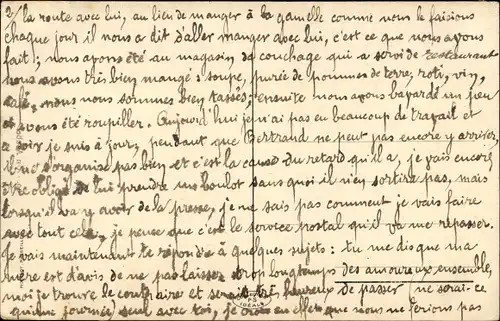 2/ la route avec lui, au lieu de manger à la gamelle comme nous le faisions
chaque jour il nous a dit d'aller manger avec lui, c'est ce que nous avons
fait; nous avons été au magasin de couchage qui a servi de restaurant
nous avons très bien mangé: soupe, purée de pommes de terre, roti, vin,
café, nous nous sommes bien tassés; ensuite nous avons bavardé un peu
et avons été roupiller. Aujourd hui je n'ai pas eu beaucoup de travail et
ce soir je suis à jour, pendant que Bertrand ne peut pas encore y arriver,
il ne s'organise pas bien et c'est la cause du retard qu'il a, je vais encore
être obligé de lui prendre un boulot sans quoi il n'en sortira pas, mais
lorsqu'il va y avoir de la presse, je ne sais pas comment je vais faire
avec tout cela, je pense que c'est le service postal qu'il va me repasser.
Je vais maintenant te répondre à quelques sujets: tu me dis que ma
mère est d'avis de ne pas laisser trop longtemps des amoureux ensemble,
moi je trouve le contraire et serais très heureux de passer ne serait-ce
qu'une journée seul avec toi, je crois en effet que nous ne ferions pas